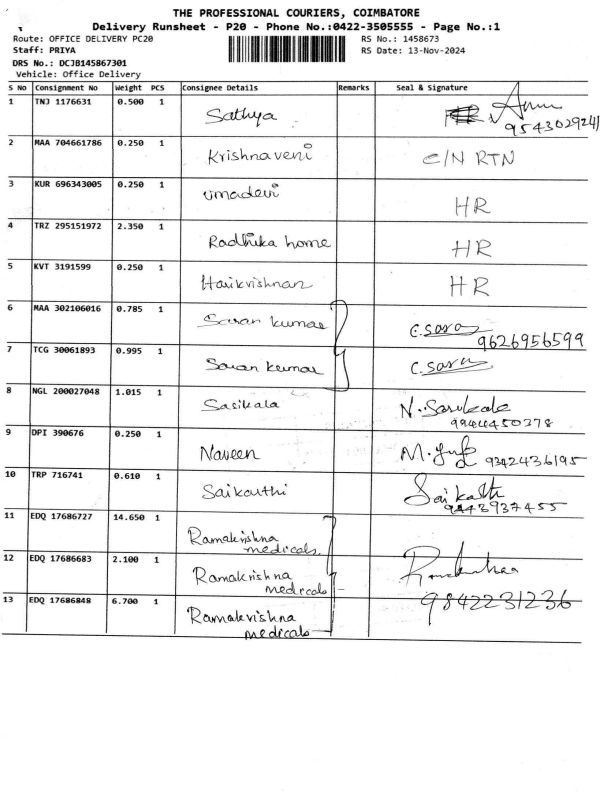 THE PROFESSIONAL COURIERS, COIMBATORE
Delivery Runsheet - P20 - Phone No.:0422-3505555 - Page No.:1
Route: OFFICE DELIVERY PC20 RS No.: 1458673
Staff: PRIYA RS Date: 13-Nov-2024
DRS No.: DCJB145867301
Vehicle: Office Delivery
S No Consignment No Weight PCS Consignee Details Remarks Seal & Signature
1 TNJ 1176631 0.500 1 Sathya
9543029241
2 MAA 704661786 0.250 1 Krishnaveni C/N RTN
3 KUR 696343005 0.250 1 Umadevi HR
4 TRZ 295151972 2.350 1 Radhika home HR
5 KVT 3191599 0.250 1 Harikrishnan HR
6 MAA 302106016 0.785 1 Saran kumar C. Sara
9626956599
7 TCG 30061893 0.995 1 Saran kumar C. Sara
8 NGL 200027048 1.015 1 Sasikala N. Sasikala
9944450378
9 DPI 390676 0.250 1 Naveen M. 9342436195
10 TRP 716741 0.610 1 Saikarthi Saikarthi
9443937455
11 EDQ 17686727 14.650 1 Ramakrishna
medicals
12 EDQ 17686683 2.100 1 Ramakrishna
medicals
13 EDQ 17686848 6.700 1 Ramakrishna 9842231236
medicals